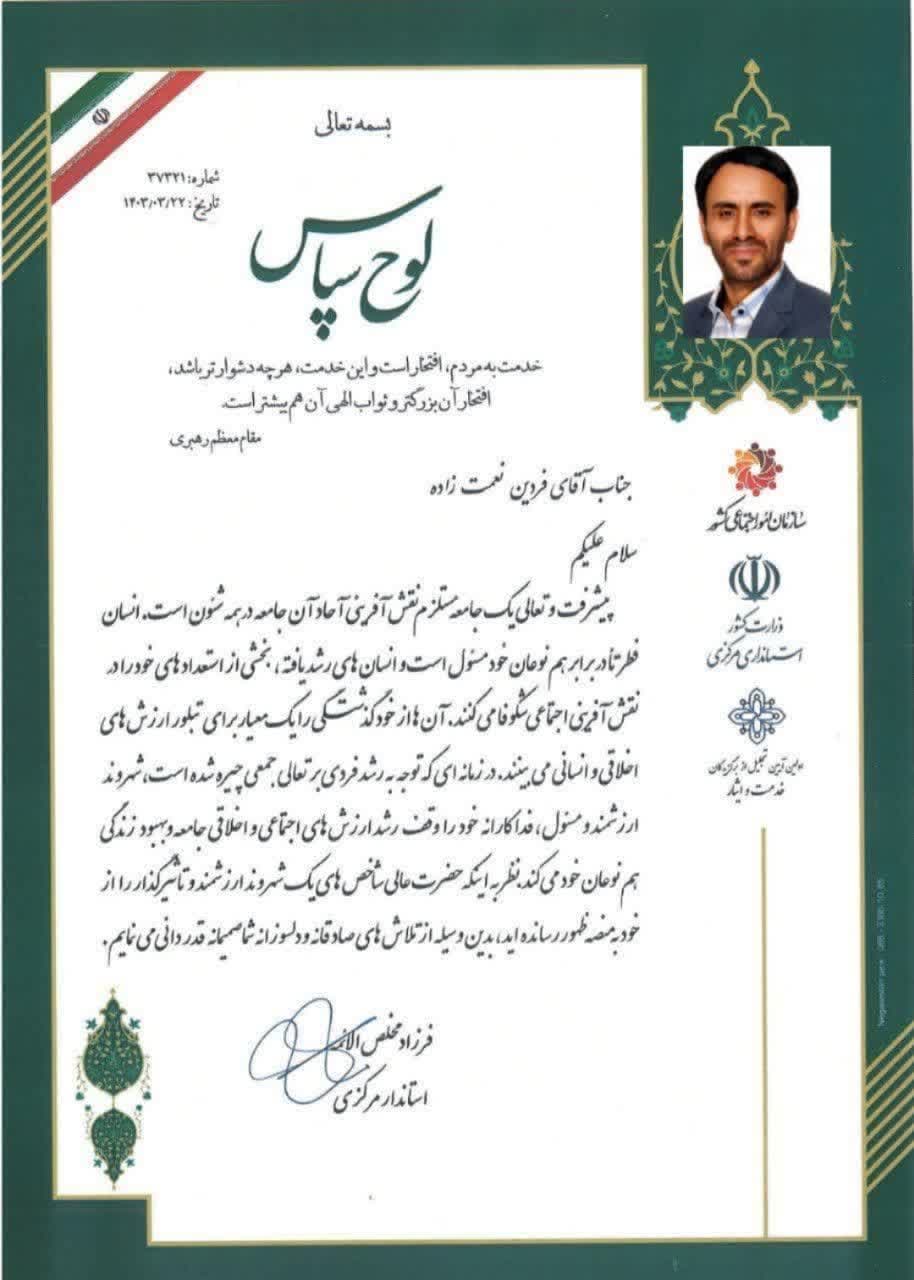 بسمه تعالی
شماره: ۳۷۳۲۱
تاریخ: ۱۴۰۳/۰۳/۲۲
لوح سپاس
خدمت به مردم، افتخار است و این خدمت، هر چه دشوارتر باشد،
افتخار آن بزرگتر و ثواب الهی آن هم بیشتر است.
مقام معظم رهبری
جناب آقای فردین نعمت زاده
سلام علیکم
پیشرفت و تعالی یک جامعه مستلزم نقش آفرینی آحاد آن جامعه در همه شئون است. انسان
فطرتاً در برابر هم نوعان خود مسئول است و انسان های رشد یافته، بخشی از استعداد های خود را در
نقش آفرینی اجتماعی شکوفا می کنند. آن ها از خود گذشتگی را یک معیار برای تبلور ارزش های
اخلاقی و انسانی می بینند. در زمانه ای که توجه به رشد فردی بر تعالی جمعی چیره شده است، شهروند
ارزشمند و مسئول، فداکارانه خود را وقف رشد ارزش های اجتماعی و اخلاقی جامعه و بهبود زندگی
هم نوعان خود می کند. نظر به اینکه حضرت عالی شاخص های یک شهروند ارزشمند و تأثیرگذار را از
خود به منصه ظهور رسانده اید، بدین وسیله از تلاش های صادقانه و دلسوزانه شما صمیمانه قدردانی می نمایم.
فرزاد مخلص الائمه
استاندار مرکزی
سازمان امور اجتماعی کشور
وزارت کشور
استانداری مرکزی
اولین آیین تجلیل از برگزیدگان
خدمت و ایثار